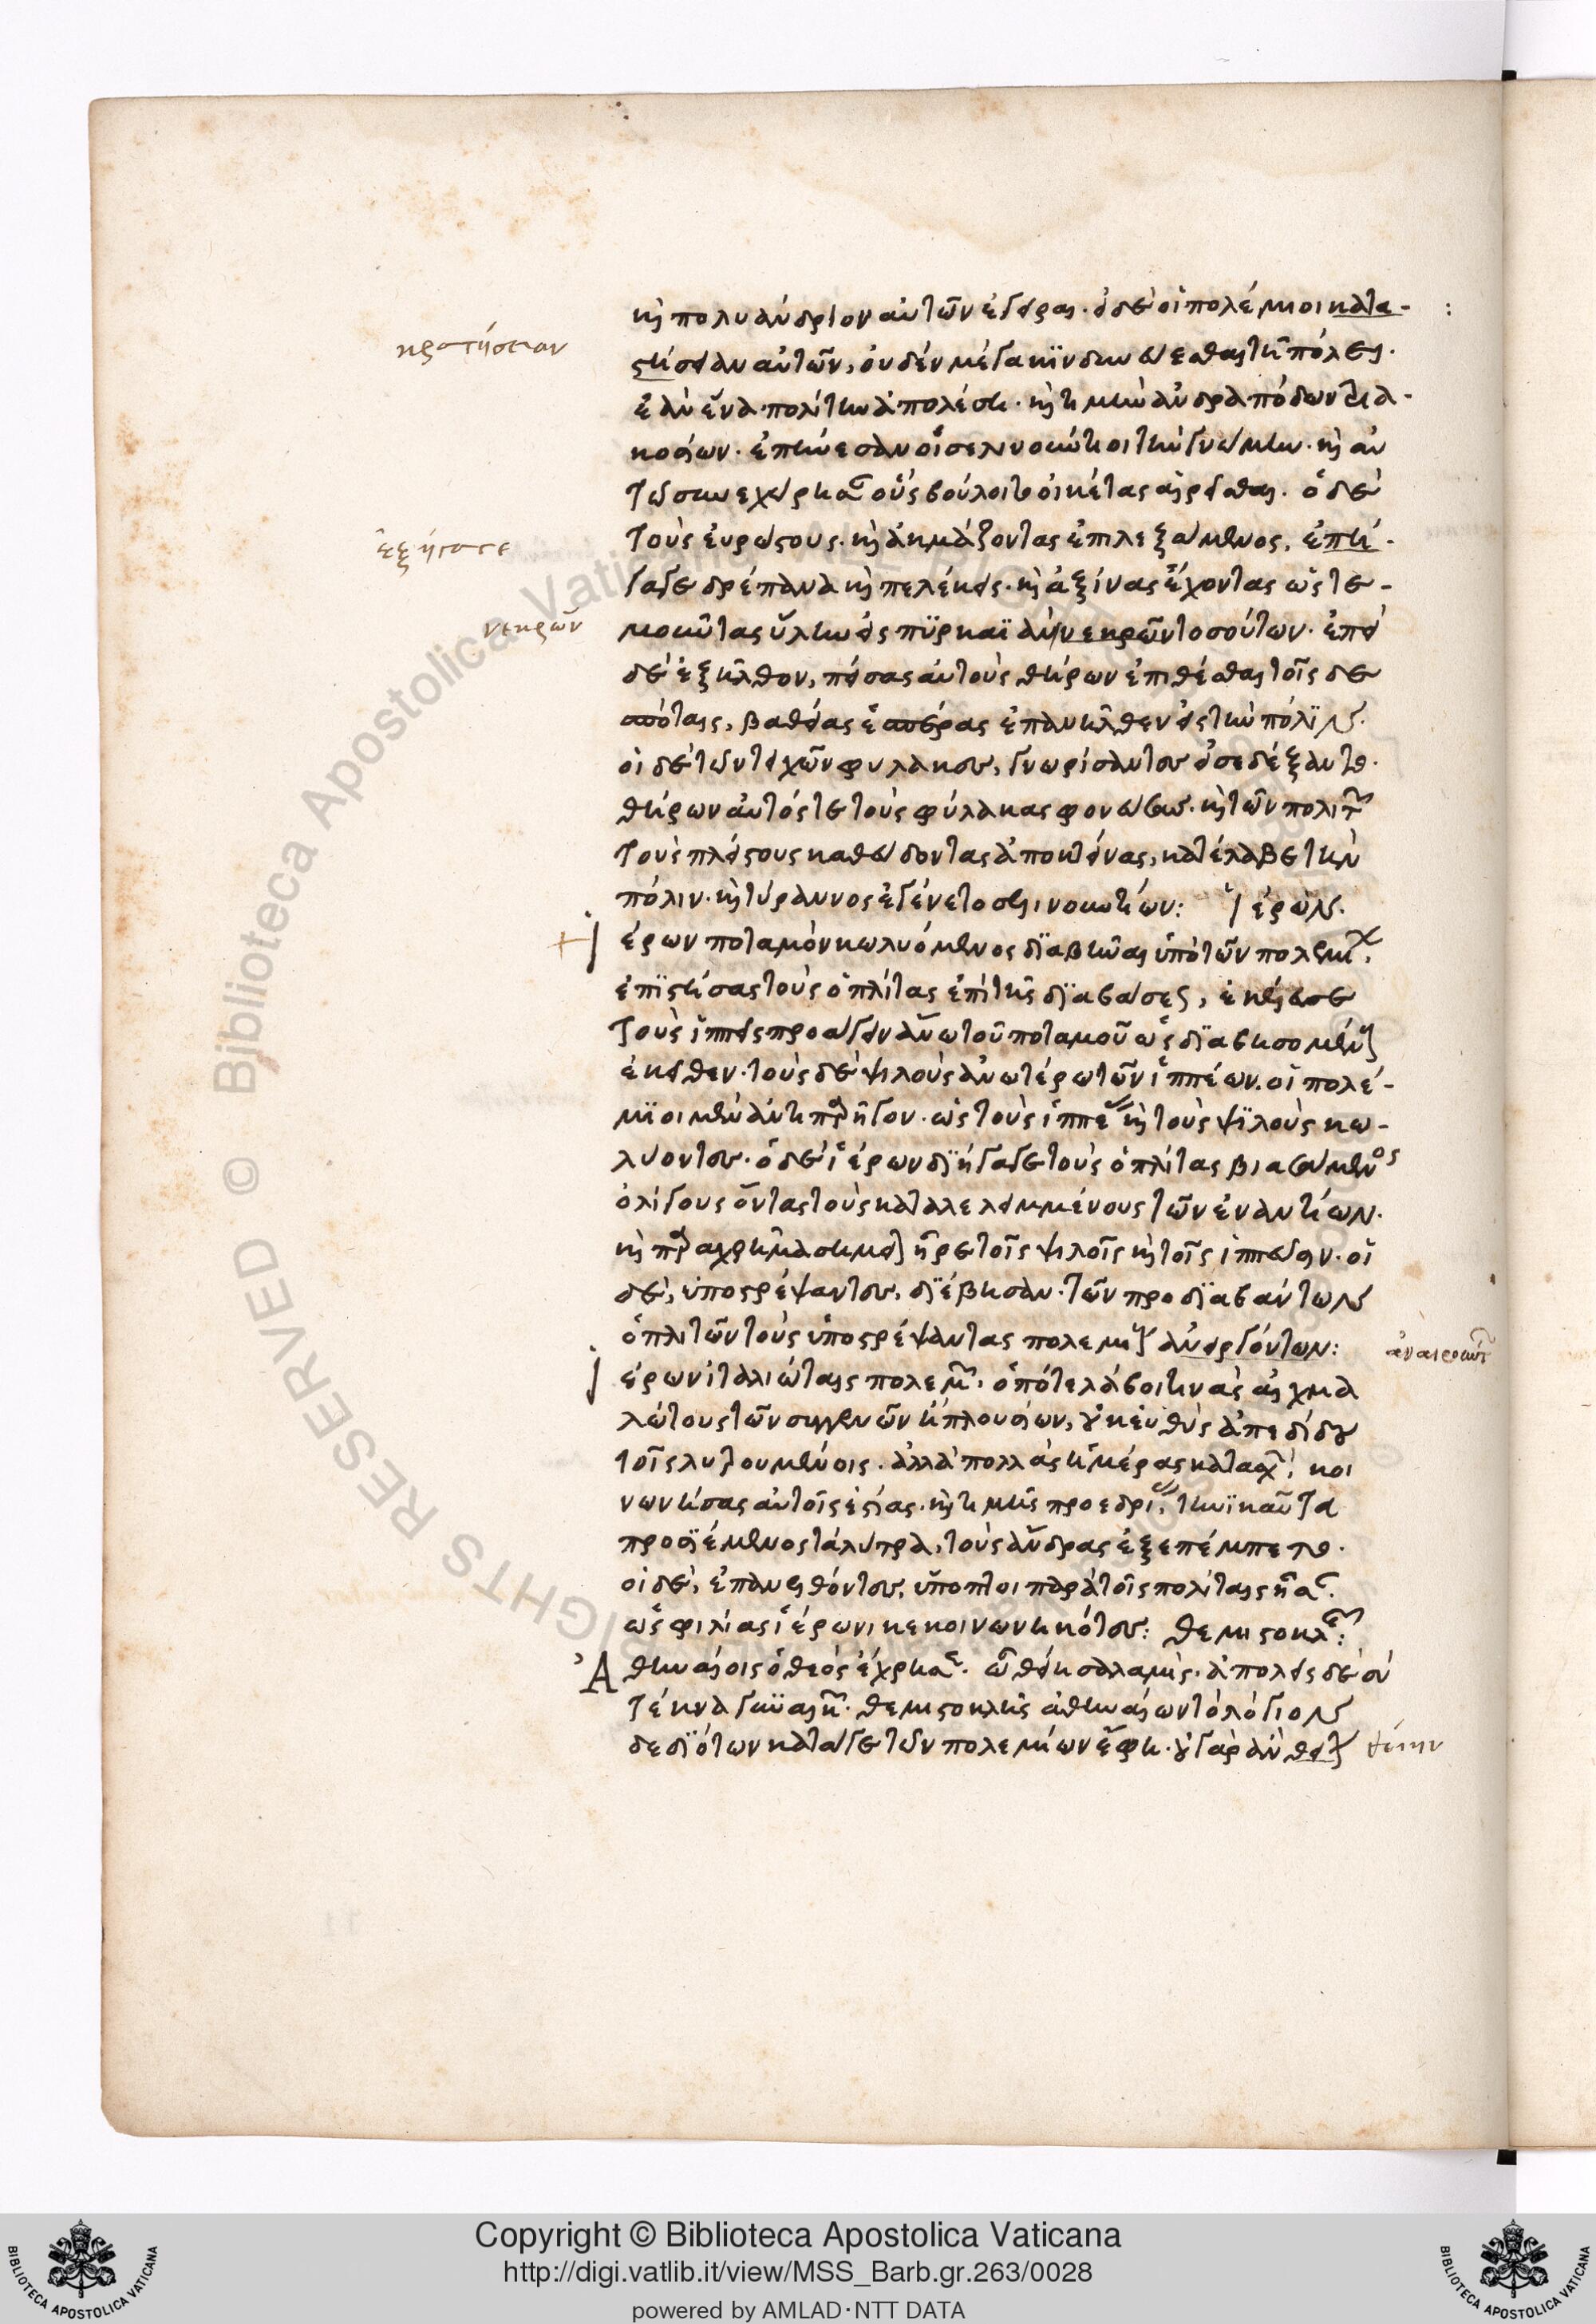 καὶ πολυάνδριον αὐτῶν ἐγεῖραι. εἰ δὲ οἱ πολέμιοι κατα-
στήσειαν αὐτῶν, οὐδὲν μέγα κινδυνεύεσθαι τῇ πόλει.
κρατήσειαν
ἐὰν ἕνα πολίτην ἀπολέσῃ. καὶ τιμὴν ἀνδραπόδων διa-
κοσίων. ἐπῄνεσαν οἱ σελινούντιοι τὴν γνώμην. καὶ αὐ
τῷ συνεχώρησαν οὓς βούλοιτο οἰκέτας αἱρεῖσθαι. ὁ δὲ
τοὺς εὐρώστους. καὶ ἀκμάζοντας ἐπιλεξάμενος, ἐπή-
ἐξήγαγε
γαγε δρέπανα καὶ πελέκεις. καὶ ἀξίνας ἔχοντας ὥς τε-
μοῦντας ὕλην εἰς πυρκαϊὰν νεκρῶν τοσούτων. ἐπεὶ
νεκρῶν
δὲ ἐξῆλθον, πείσας αὐτοὺς θήρων ἐπιθέσθαι τοῖς δε
σπόταις, βαθείας ἑσπέρας ἐπανῆλθεν εἰς τὴν πόλιν.
οἱ δὲ τῶν τειχῶν φύλακες, γνωρίσαντες εἰσεδέξαντο.
θήρων αὐτός τε τοὺς φύλακας φονεύσας. καὶ τῶν πολιτῶν
τοὺς πλείστους καθεύδοντας ἀποκτείνας, κατέλαβε τὴν
πόλιν. καὶ τύραννος ἐγένετο σελινουντίων: Ἱέρων.
Ἱέρων ποταμὸν κωλυόμενος διαβῆναι ὑπὸ τῶν πολεμίων,
ἐπιστήσας τοὺς ὁπλίτας ἐπὶ τῆς διαβάσεως, ἐκέλευσε
τοὺς ἱππεῖς προάγειν ἄνω τοῦ ποταμοῦ ὡς διαβησομένους
ἐκεῖθεν. τοὺς δὲ ψιλοὺς ἀνωτέρω τῶν ἱππέων. οἱ πολέ-
μιοι μὲν ἀντιπαρῆγον. ὡς τοὺς ἱππέας καὶ τοὺς ψιλοὺς κω-
λύοντες. ὁ δὲ ἱέρων διήγαγε τοὺς ὁπλίτας βιασάμενος
ὀλίγους ὄντας τοὺς καταλελειμμένους τῶν ἐναντίων.
καὶ παραχρῆμα σημεῖον ἦρε τοῖς ψιλοῖς καὶ τοῖς ἱππεῦσιν. οἱ
δὲ, ὑποστρέψαντες, διέβησαν. τῶν προδιαβάντων
ὁπλιτῶν τοὺς ὑποστρέψαντας πολεμίους ἀνειργόντων:
ἀναιρούντων
Ἱέρων ἰταλιώταις πολεμῶν. ὁπότε λάβοι τινὰς αἰχμα
λώτους τῶν συγγενῶν ἢ πλουσίων, οὐκ εὐθὺς ἀπεδίδου
τοῖς λυτρουμένοις. ἀλλὰ πολλὰς ἡμέρας κατασχών, κοι
νωνήσας αὐτοῖς ἑστίας. καὶ τιμῆς προεδρίας, τηνικαῦτα
προσιέμενος τὰ λύτρα, τοὺς ἄνδρας ἐξεπέμπετο.
οἱ δὲ, ἐπανελθόντες, ὕποπτοι παρὰ τοῖς πολίταις ἦσαν.
ὡς φιλίας ἱέρωνι κεκοινωνηκότες: Θεμιστοκλῆς:
Ἀθηναίοις ὁ θεὸς ἔχρησεν. ὦ θείη σαλαμὶς. ἀπολεῖς δὲ σὺ
τέκνα γυναικῶν. Θεμιστοκλῆς ἀθηναίων τὸ λόγιον
δεδιότων κατάγε τῶν πολεμίων ἔφη. οὐ γὰρ ἂν θείην
θείην
Copyright © Biblioteca Apostolica Vaticana
http://digi.vatlib.it/view/MSS_Barb.gr.263/0028
powered by AMLAD·NTT DATA